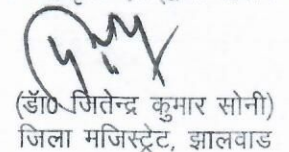 (डॉ0 जितेन्द्र कुमार सोनी)
जिला मजिस्ट्रेट, झालवाड